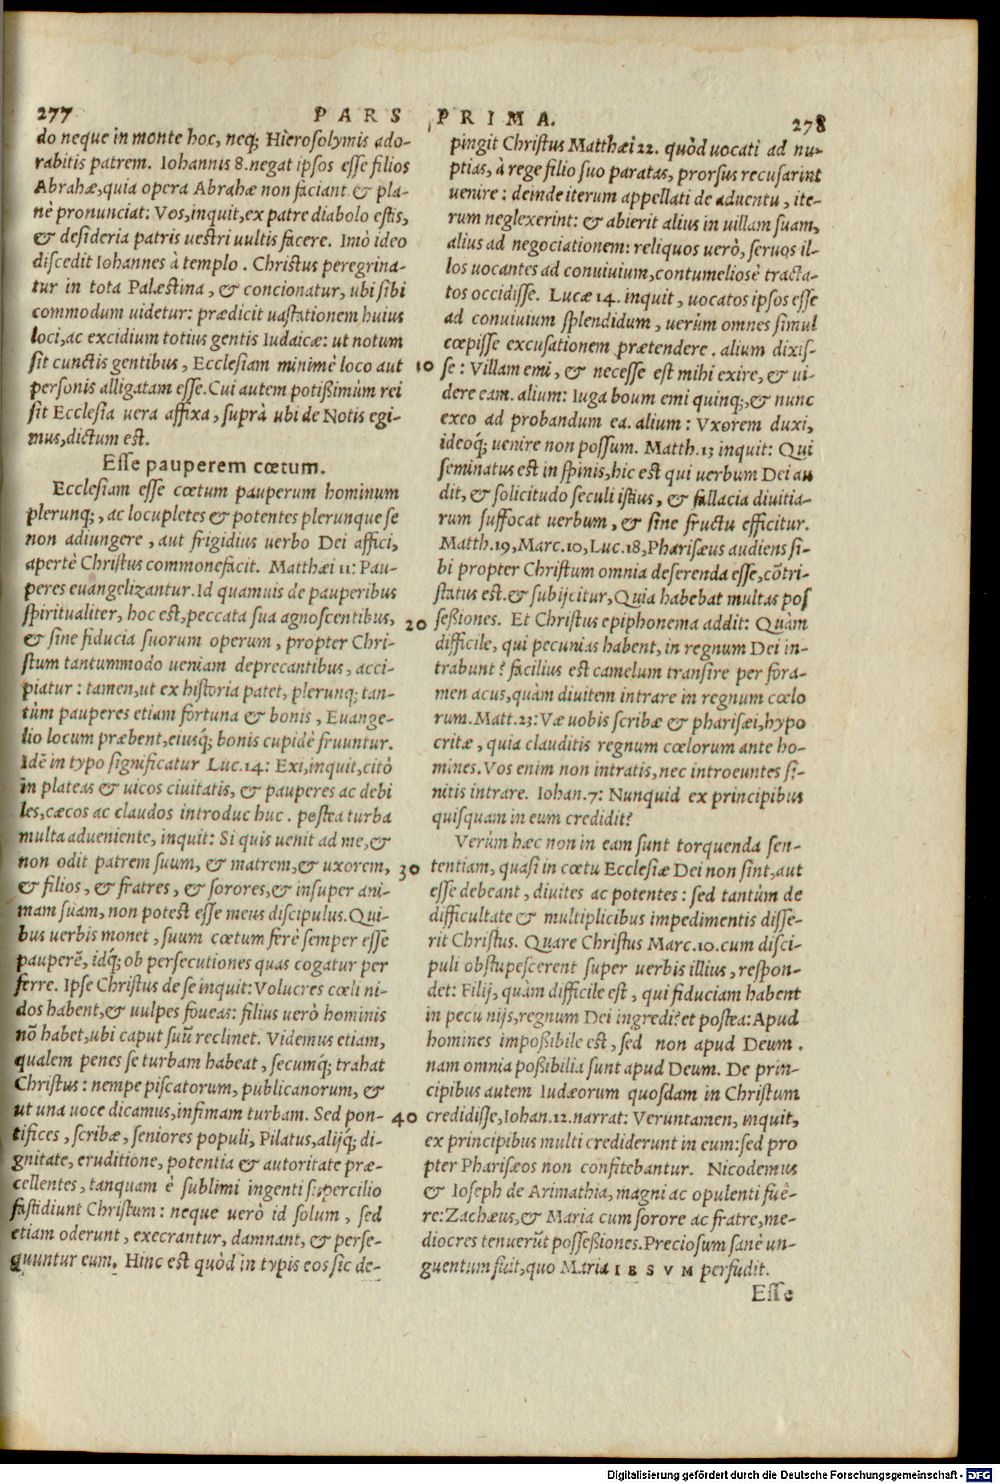 277 PARS PRIMA. 278
do neque in monte hoc, neq; Hierosolymis ado-
rabitis patrem. Iohannis 8. negat ipsos esse filios
Abrahæ, quia opera Abrahæ non faciant. & pla-
nè pronunciat: Vos, inquit, ex patre diabolo estis,
& desideria patris uestri uultis facere. Imò ideo
discedit Iohannes à templo. Christus peregrina-
tur in tota Palæstina, & concionatur, ubi sibi
commodum uidetur: prædicit uastationem huius
loci, ac excidium totius gentis Iudaicæ: ut notum
sit cunctis gentibus, Ecclesiam minimè loco aut
personis alligatam esse. Cui autem potißimùm rei
sit Ecclesia uera affixa, suprà ubi de Notis egi-
mus, dictum est.
Esse pauperem cœtum.
Ecclesiam esse cœtum pauperum hominum
plerunq;, ac locupletes & potentes plerunque se
non adiungere, aut frigidius uerbo Dei affici,
apertè Christus commonefacit. Matthæi 11: Pau-
peres euangelizantur. Id quamuis de pauperibus
spiritualiter, hoc est, peccata sua agnoscentibus,
& sine fiducia suorum operum, propter Chri-
stum tantummodo ueniam deprecantibus, acci-
piatur: tamen, ut ex historia patet, plerunq; tan-
tùm pauperes etiam fortuna & bonis, Euange-
lio locum præbent, eiusq́; bonis cupidè fruuntur.
Idẽ in typo significatur Luc. 14: Exi, inquit, citò
in plateas & uicos ciuitatis, & pauperes ac debi
les, cæcos ac claudos introduc huc. postea turba
multa adueniente, inquit: Si quis uenit ad me, &
non odit patrem suum, & matrem, & uxorem,
& filios, & fratres, & sorores, & insuper ani-
mam suam, non potest esse meus discipulus. Qui-
bus uerbis monet, suum cœtum ferè semper esse
pauperẽ, idq́; ob persecutiones quas cogatur per
ferre. Ipse Christus de se inquit: Volucres cœli ni-
dos habent, & uulpes foueas: filius uerò hominis
nõ habet, ubi caput suũ reclinet. Videmus etiam,
qualem penes se turbam habeat, secumq́; trahat
Christus: nempe piscatorum, publicanorum, &
ut una uoce dicamus, infimam turbam. Sed pon-
tifices, scribæ, seniores populi, Pilatus, alijq́; di-
gnitate, eruditione, potentia & autoritate præ-
cellentes, tanquam è sublimi ingenti supercilio
fastidiunt Christum: neque uerò id solum, sed
etiam oderunt, execrantur, damnant, & perse-
quuntur eum. Hinc est quòd in typis eos sic de-
pingit Christus Matthæi 22. quòd uocati ad nu-
ptias, à rege filio suo paratas, prorsus recusarint
uenire: deinde iterum appellati de aduentu, ite-
rum neglexerint: & abierit alius in uillam suam,
alius ad negociationem: reliquos uerò, seruos il-
los uocantes ad conuiuium, contumeliosè tracta-
tos occidisse. Lucæ 14. inquit, uocatos ipsos esse
ad conuiuium splendidum, uerùm omnes simul
cœpisse excusationem prætendere. alium dixis-
10 se: Villam emi, & necesse est mihi exire, & ui-
dere eam. alium: Iuga boum emi quinq;, & nunc
exeo ad probandum ea. alium: Vxorem duxi,
ideoq́; uenire non possum. Matth. 13 inquit: Qui
seminatus est in spinis, hic est qui uerbum Dei au
dit, & solicitudo seculi istius, & fallacia diuitia-
rum suffocat uerbum, & sine fructu efficitur.
Matth. 19, Marc. 10, Luc. 18, Pharisæus audiens si-
bi propter Christum omnia deserenda esse, cõtri-
status est. & subijcitur, Quia habebat multas pos
20 seßiones. Et Christus epiphonema addit: Quàm
difficile, qui pecunias habent, in regnum Dei in-
trabunt? facilius est camelum transire per fora-
men acus, quàm diuitem intrare in regnum cœlo
rum. Matt. 23: Væ uobis scribæ & pharisæi, hypo
critæ, quia clauditis regnum cœlorum ante ho-
mines. Vos enim non intratis, nec introeuntes si-
nitis intrare. Iohan. 7: Nunquid ex principibus
quisquam in eum credidit?
Verùm hæc non in eam sunt torquenda sen-
30 tentiam, quasi in cœtu Ecclesiæ Dei non sint, aut
esse debeant, diuites ac potentes: sed tantùm de
difficultate & multiplicibus impedimentis disse-
rit Christus. Quare Christus Marc. 10. cum disci-
puli obstupescerent super uerbis illius, respon-
det: Filij, quàm difficile est, qui fiduciam habent
in pecunijs, regnum Dei ingredi? et postea: Apud
homines impoßibile est, sed non apud Deum.
nam omnia poßibilia sunt apud Deum. De prin-
cipibus autem Iudæorum quosdam in Christum
40 credidisse, Iohan. 12. narrat: Veruntamen, inquit,
ex principibus multi crediderunt in eum: sed pro
pter Pharisæos non confitebantur. Nicodemus
& Ioseph de Arimathia, magni ac opulenti fuê-
re: Zachæus, & Maria cum sorore ac fratre, me-
diocres tenuerũt posseßiones. Preciosum sanè un-
guentum fuit, quo Maria IESVM perfudit.
Esse
Digitalisierung gefördert durch die Deutsche Forschungsgemeinschaft - DFG